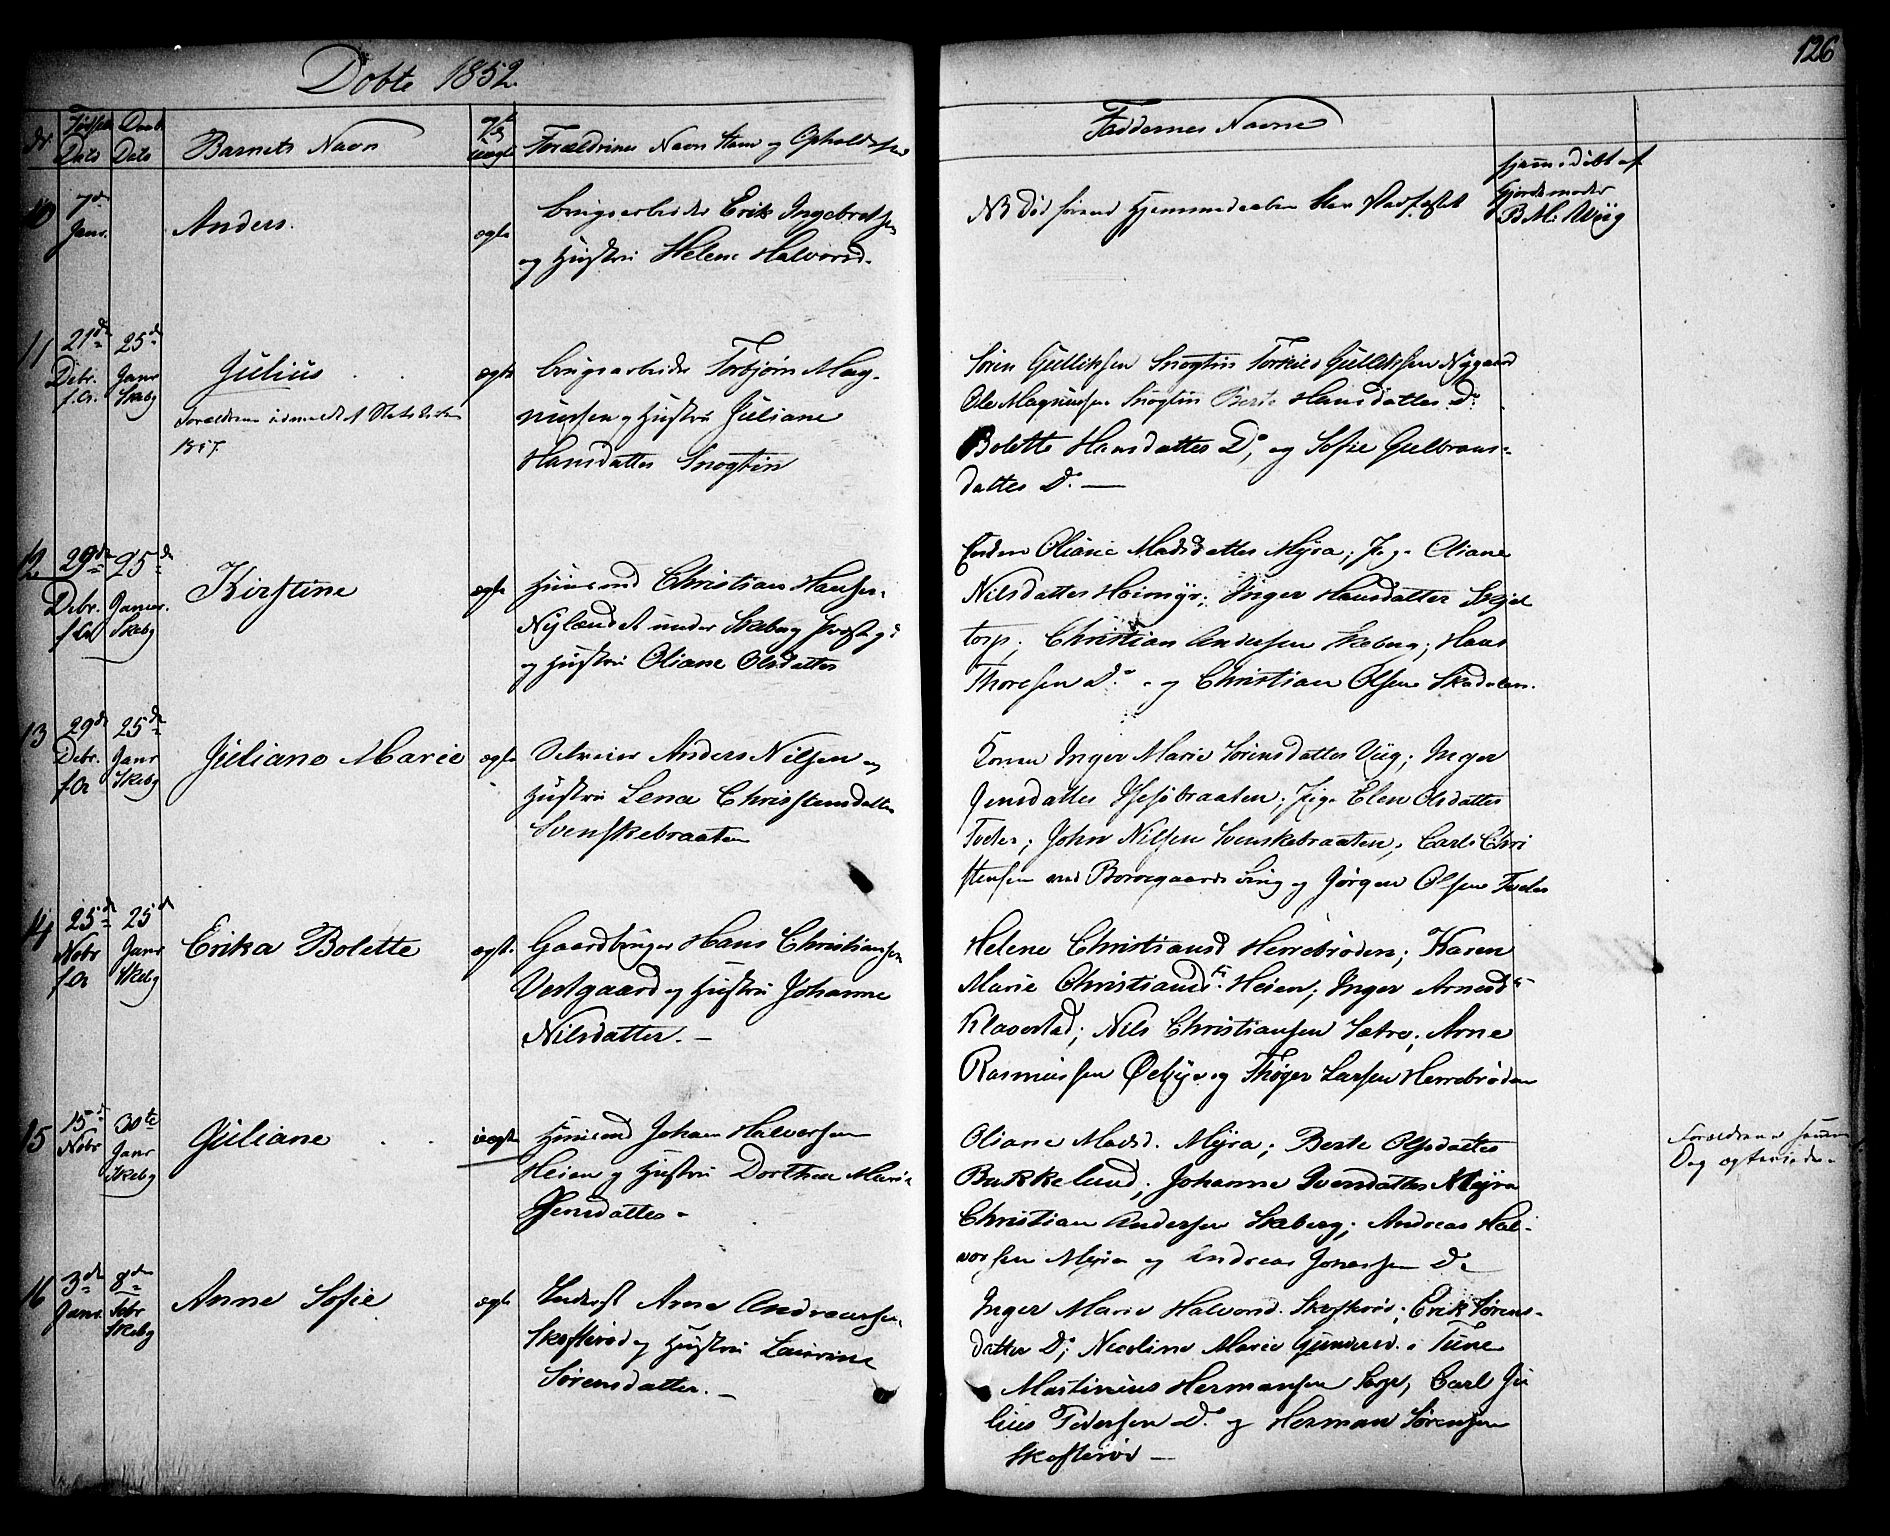 126
Døbte 1852.
Nr
Fødsels Dato
Daab Dato
Barnets Navn
Forældrenes Navn Stand og Opholdssted
Faddernes Navne
10
7de
Janr.
Anders.
ægte
brugsarbeider Erik Ingebretsen
og Hustru Helene Halvorsd.
NB Død førend Hjemmedaaben blev stadfæstet
hjemedøbt af
Gjordemoder
B. M. Wiig
11
21de
Debr.
f. A.
25de
Janr
Skebg
Julius
Forældrene udmeldt af Statskirken
1857.
ægte
brugsarbeider Torbjørn Mag-
nussen og Hustru Juliane
Hansdatter Snogtin
Søren Gulliksen Snogtin Gulliksen Nygaard
Ole Magnussen Snogtin Berte Hansdatter Do
Bolette Hansdatter Do, og Sofie Gulbrans-
datter Do. —
12
29de
Debr.
f. A
25de
Januar.
Skebg
Kirstine
ægte
Huusmand Christian Hansen
Nylændet under Skeberg Præstgd
og Hustru Oliane Olsdatter
Enken Oliane Madsdatter Myra; Pige Oliane
Nilsdatter Heimyr; Inger Hansdatter Skjel
torp; Christian Andersen Skeberg; Hans
Thoresen Do. og Christian Olsen Skadalen.
13
29de
Debr.
f. A
25de
Janr
Skebg
Juliane Marie
ægte
Selveier Anders Nilsen og
Hustru Lena Christensdatter
Svenskebraaten
Konen Inger Marie Sørensdatter Viig; Inger
Jensdatter braaten; Pige Elen Olsdatter
Tveter; John Nilsen Svenskebraaten; Carl Chri
stensen ved Borregaards Brug og Jørgen Olsen Tveter
14
25de
Nobr
f. A
25d
Janr
Skebg
Erika Bolette
ægte.
Gaardbruger Hans Christiansen
Vestgaard og Hustru Johanne
Nilsdatter. —
Helene Christiansd Herrebrøden; Karen
Marie Christiansdtr. Heien; Inger Arnesdtr
Klavestad; Nils Christiansen Sætre; Arne
Rasmussen Øeby og Thøger Larsen Herrebrøden
15
15de
Nobr
30te
Janr
Skebg
Juliane . .
uægte
Huusmand Johan Halvorsen
Heien og Hustru Dorthea Marie
Jensdatter -
Oliane Madsd. Myra; Berte Olsdatter
Burkkelund; Johanne Svendatter Myra
Christian Andersen Skeberg; Andreas Hal-
vorsen Myra og Andreas Jonassen Do
Forældrene samme
Dag ægteviede.
16
3de
Janr.
8de
Febr
Skebg
Anne Sofie
ægte
Inderst Arne Andreassen
Skofterød og Hustru Laurine
Sørensdatter. —
Inger Marie Halvorsd. Skofterød; Erik Sørens-
datter Do; Nicoline Marie Gundersd. i Tune
Martinius Hermansen Do, Carl Ju
lius Pedersen Do. og Herman Sørensen
Skofterød —